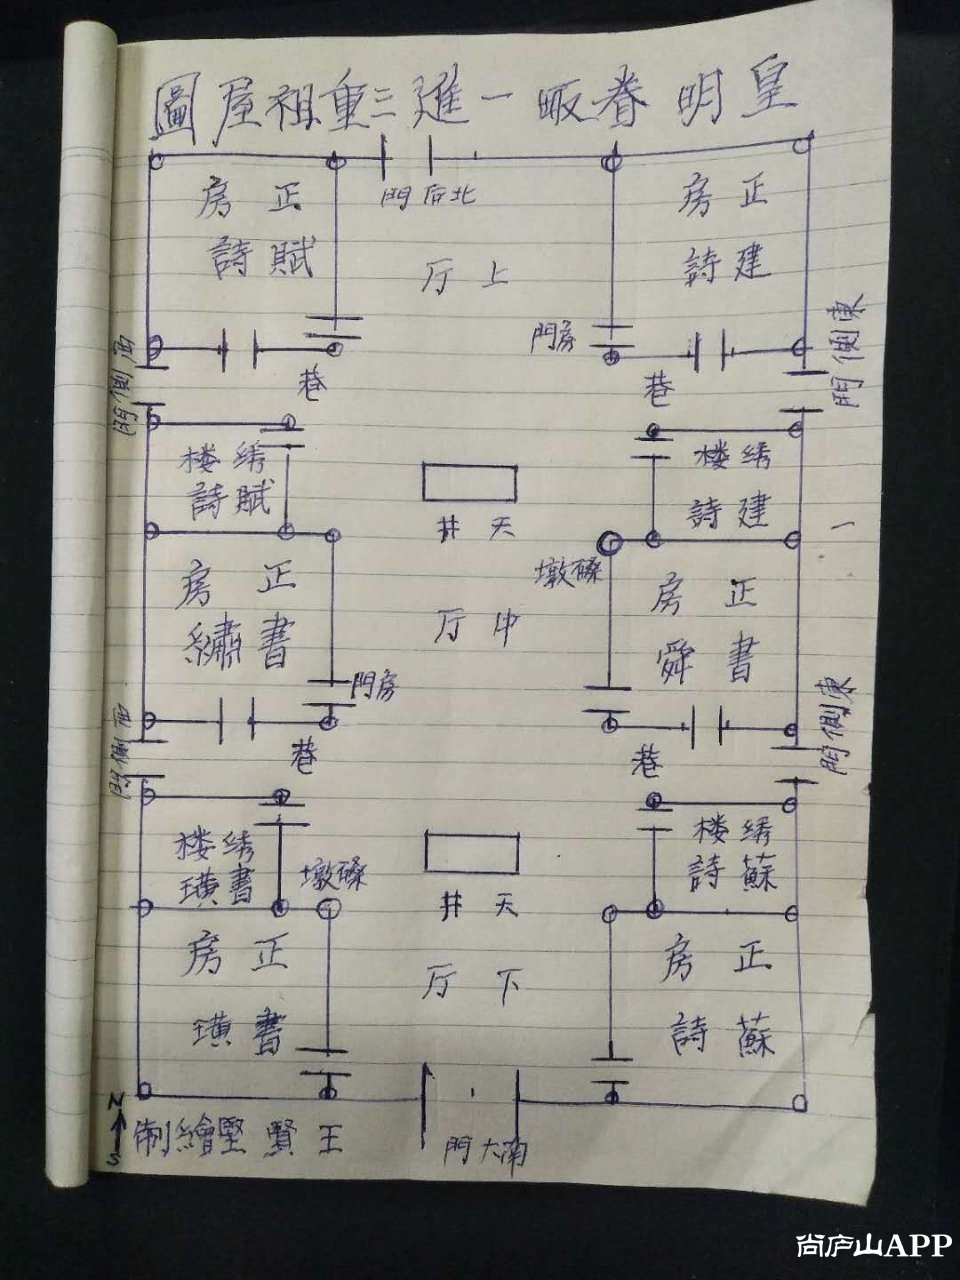 皇明眷畈一進三重祖屋圖
北后門
正房
建詩
正房
賦詩
上厅
房門
東側門
西側門
巷
巷
绣楼
建詩
绣楼
賦詩
天井
磉墩
正房
書舜
中厅
正房
書繡
房門
東側門
西側門
巷
巷
绣楼
蘇詩
绣楼
書璜
磉墩
天井
正房
蘇詩
下厅
正房
書璜
南大門
王賢堅繪制
N
S
尚庐山APP